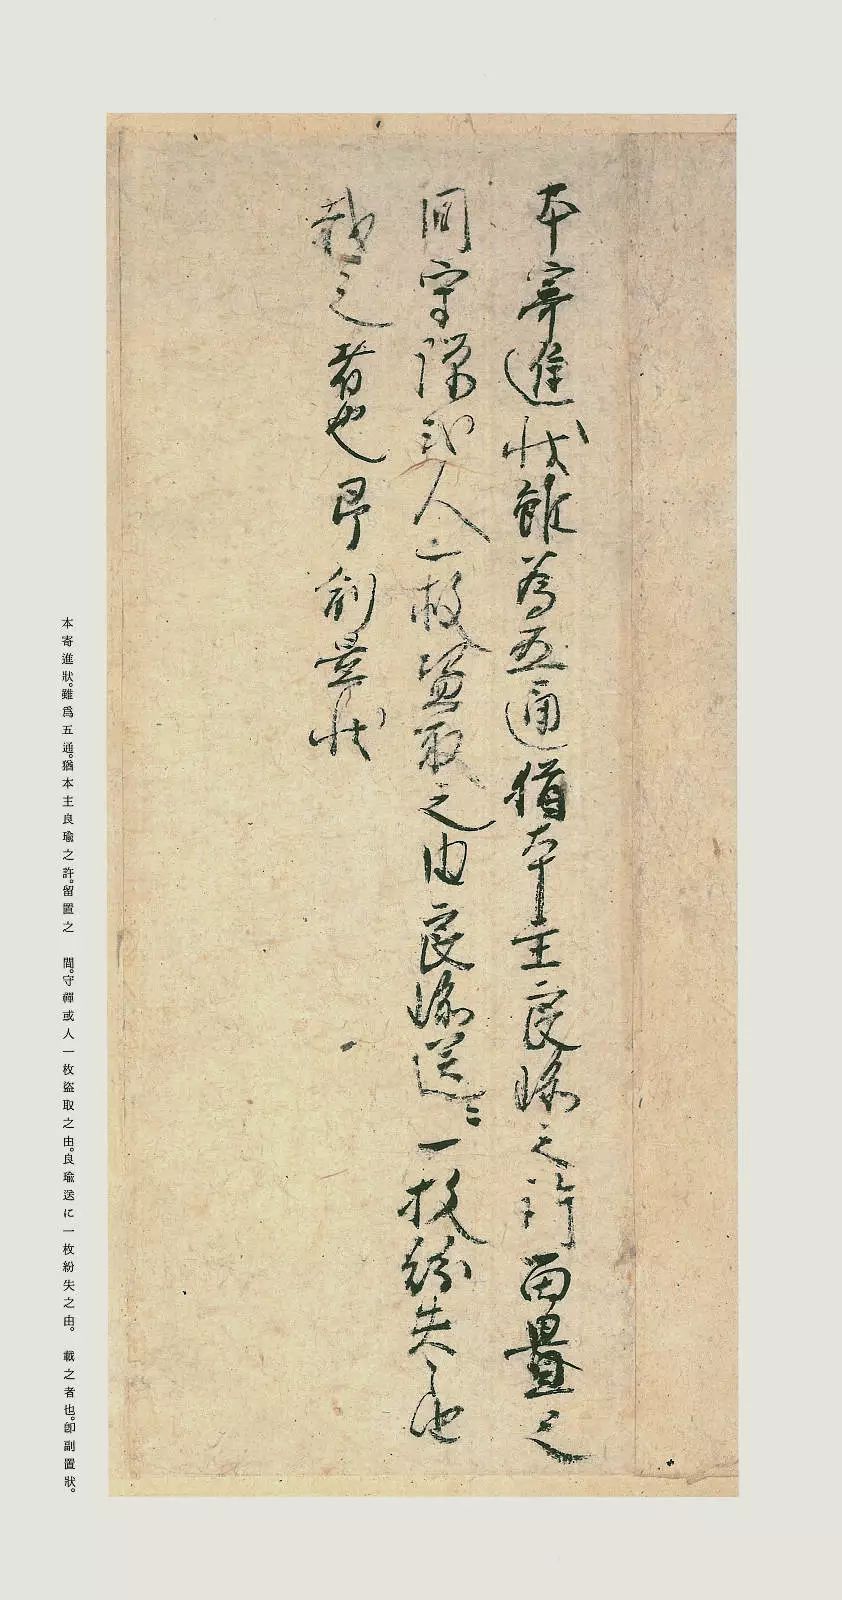 本寄進状雖為五通猶本主良瑜之許留置之
間守禅或人一枚盗取之由良瑜送ニ一枚紛失之由
載之者也即副置状
本寄進狀。雖爲五通。猶本主良瑜之許。留置之　間。守禪或人一枚盜取之由。良瑜送に一枚紛失之由。　載之者也。卽副置狀。